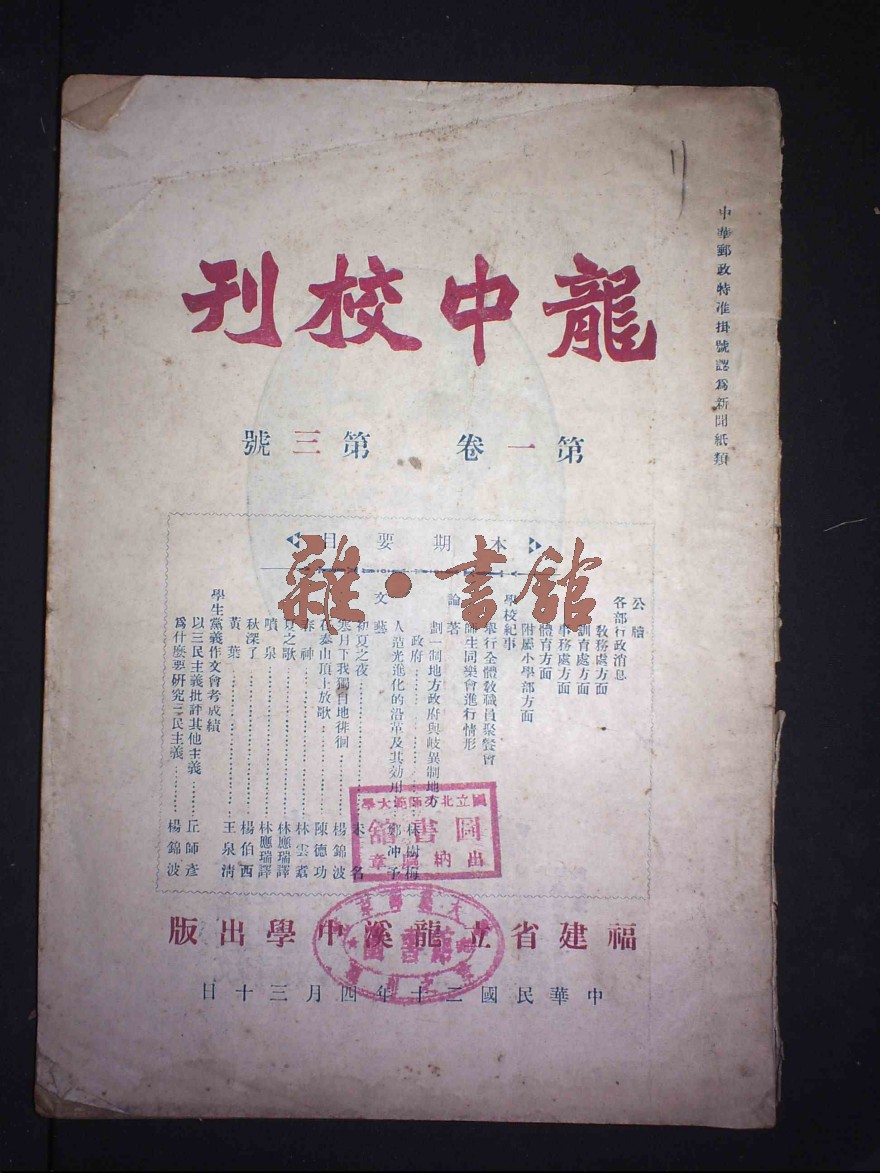 中華郵政特准掛號認爲新聞紙類
龍中校刊
第一卷 第三號
本期要目
公牘
各部行政消息
教務處方面
訓育處方面
事務處方面
體育方面
附屬小學部方面
學校紀事
舉行全體教職員聚餐會
師生同樂會進行情形
論著
劃一制地方政府與歧異制地方
政府……林樹梅
人造光進化的沿革及其効用……鄭沖予
文藝
初夏之夜……未名
寒月下我獨自地徘徊……楊錦波
在泰山頂上放歌……陳德功
春神……林雲叢
夏之歌……林應瑞譯
噴泉……林應瑞譯
秋深了……楊伯西
黃葉……王泉清
學生黨義作文會考成績
以三民主義批評其他主義……丘師彥
爲什麼要研究三民主義……楊錦波
國立北平師範大學
圖書館
出納
章
福建省立龍溪中學出版
圖書館
中華民國二十年四月三十日
雜·書館